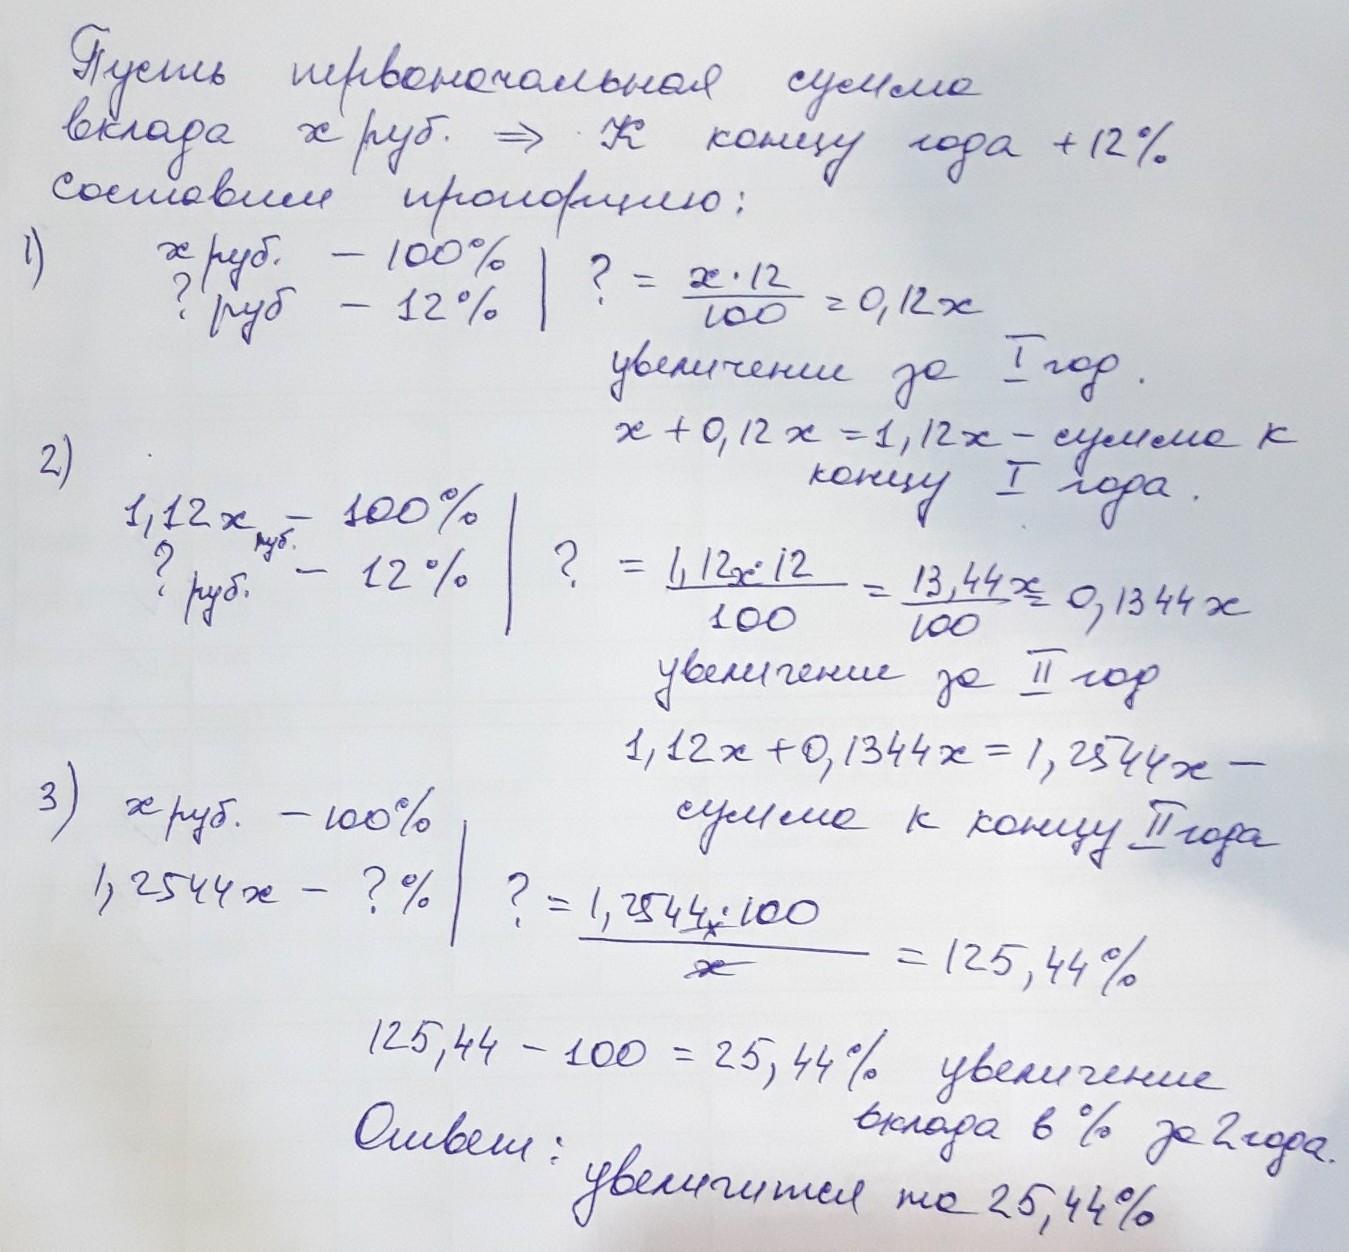 Пусть первоначальная сумма
вклада x руб. ⇒ К концу года +12%
Составим пропорцию:
1) x руб. – 100% | ? = x·12/100 = 0,12x
? руб – 12%
увеличение за I год.
x + 0,12x = 1,12x – сумма к
концу I года.
2)
1,12x руб. – 100% | ? = 1,12x·12/100 = 13,44x/100 = 0,1344x
? руб. – 12%
увеличение за II год
1,12x + 0,1344x = 1,2544x –
сумма к концу II года
3) x руб. – 100%
1,2544x – ? % | ? = 1,2544x·100/x = 125,44%
125,44 – 100 = 25,44% увеличение
вклада в % за 2 года.
Ответ: увеличится на 25,44%